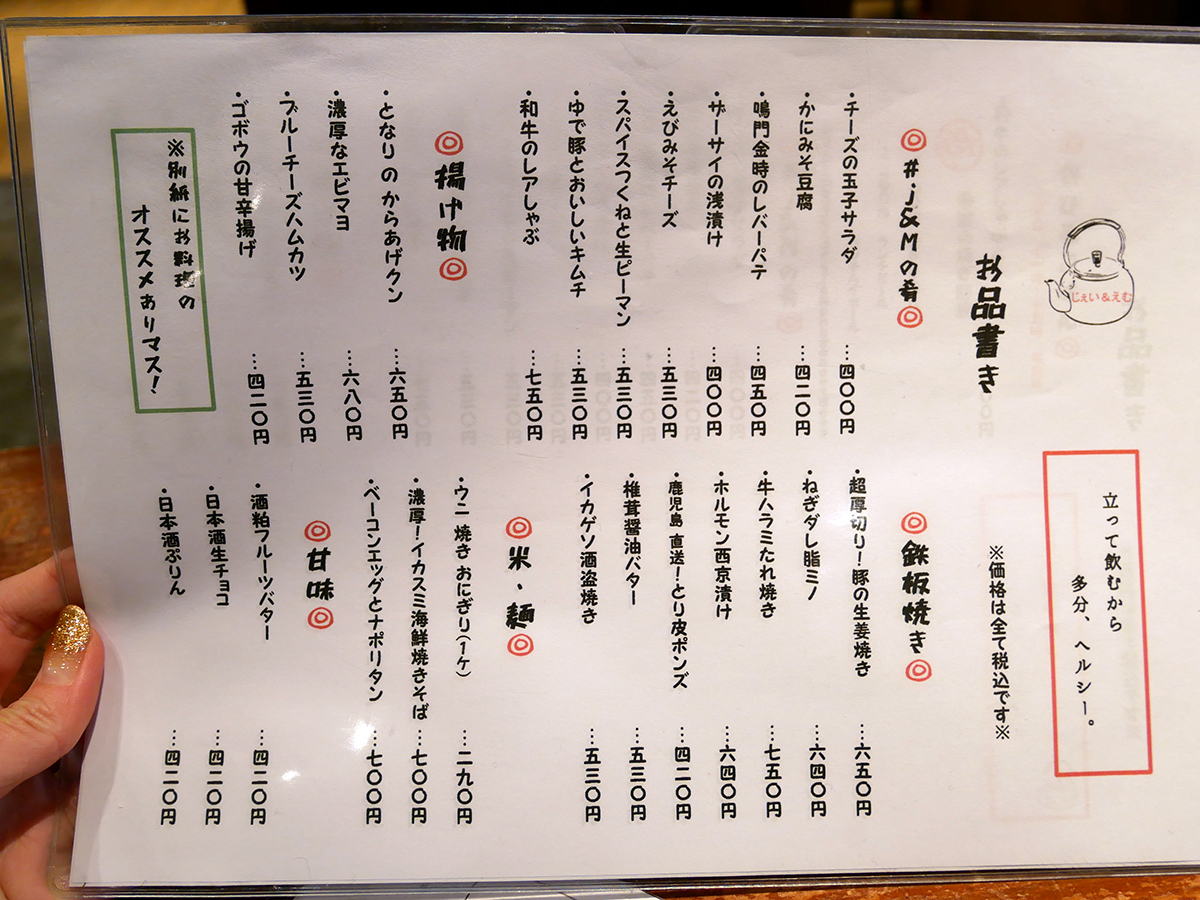 じぇい&えむ
お品書き
立って飲むから
多分、ヘルシー。
※価格は全て税込です※
◎#j&Mの肴◎
・チーズの玉子サラダ …四〇〇円
・かにみそ豆腐 …四二〇円
・鳴門金時のレバーパテ …四五〇円
・ザーサイの浅漬け …四〇〇円
・えびみそチーズ …五三〇円
・スパイスつくねと生ピーマン …五三〇円
・ゆで豚とおいしいキムチ …五三〇円
・和牛のレアしゃぶ …七五〇円
◎揚げ物◎
・となりのからあげクン …六五〇円
・濃厚なエビマヨ …六八〇円
・ブルーチーズハムカツ …五三〇円
・ゴボウの甘辛揚げ …四二〇円
※別紙にお料理の
オススメありマス!
◎鉄板焼き◎
・超厚切り!豚の生姜焼き …六五〇円
・ねぎダレ脂ミノ …六四〇円
・牛ハラミたれ焼き …七五〇円
・ホルモン西京漬け …六四〇円
・鹿児島 直送!とり皮ポンズ …四二〇円
・椎茸醤油バター …五三〇円
・イカゲソ酒盗焼き …五三〇円
◎米・麺◎
・ウニ 焼き おにぎり(1ケ) …二九〇円
・濃厚!イカスミ海鮮焼きそば …七〇〇円
・ベーコンエッグとナポリタン …七〇〇円
◎甘味◎
・酒粕フルーツバター …四二〇円
・日本酒生チョコ …四二〇円
・日本酒ぷりん …四二〇円